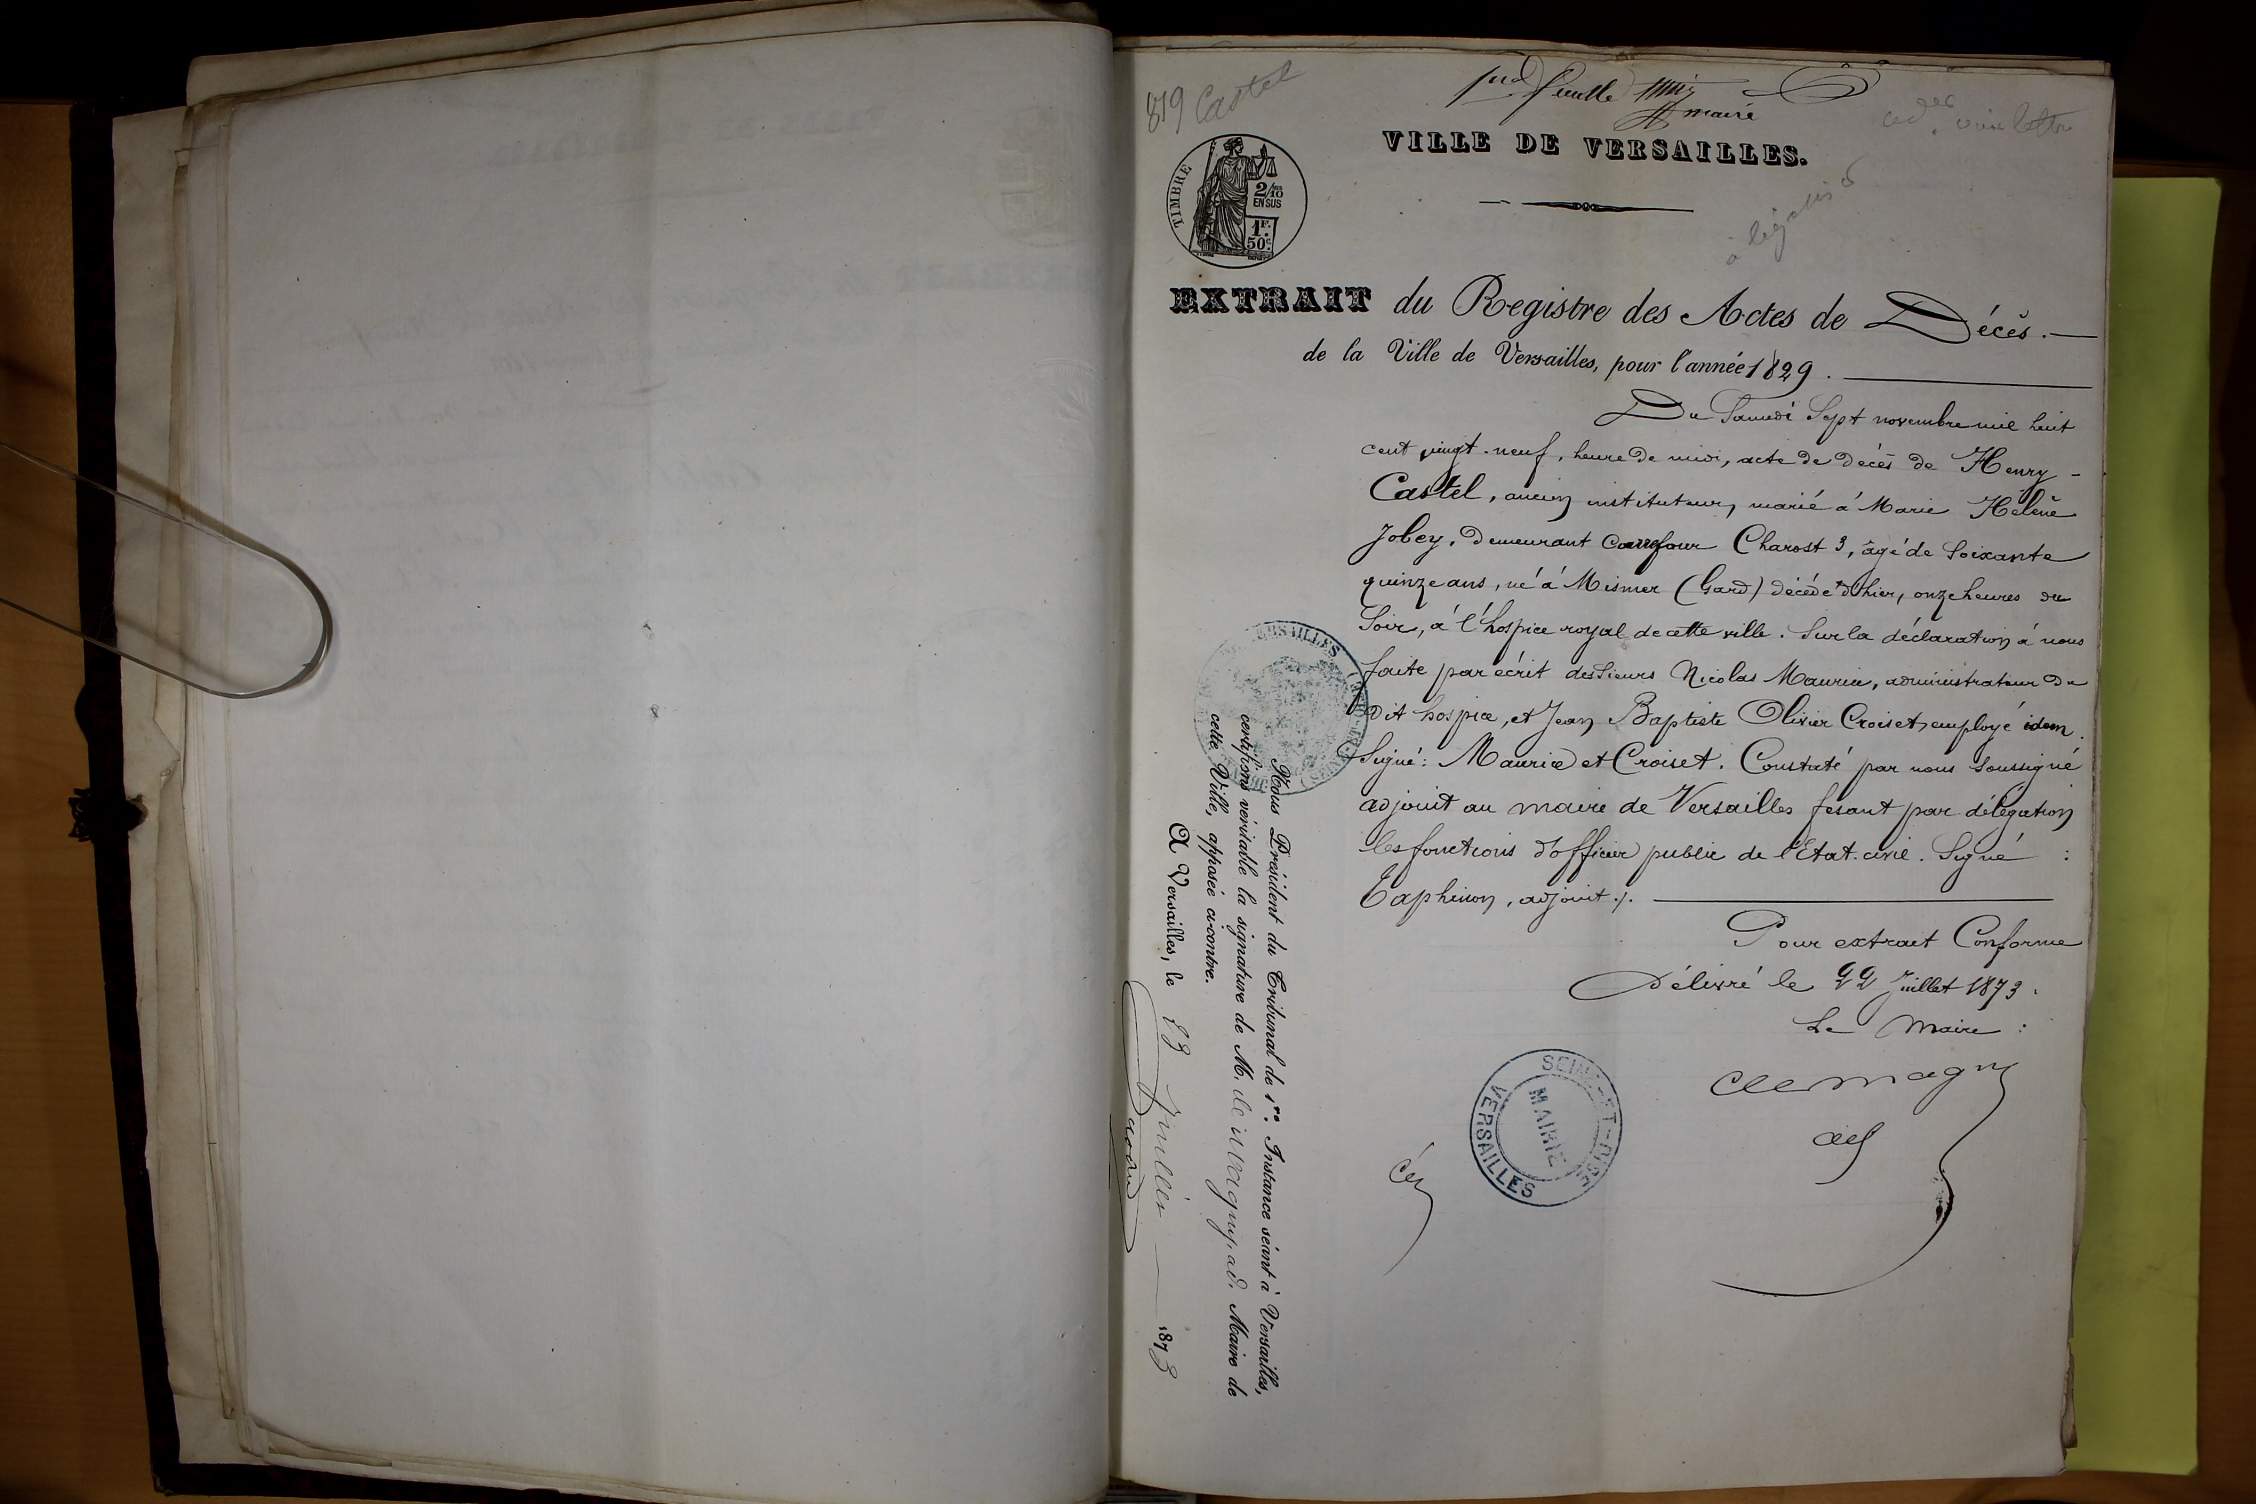 819 Castel
feuille
maire
VILLE DE VERSAILLES.
à légaliser
TIMBRE
2/10
EN SUS
1F.
50c.
EXTRAIT du Registre des Actes de Décès.
de la Ville de Versailles, pour l'année 1829.
Du Samedi Sept novembre mil huit
cent vingt-neuf, heure de midi, acte de décès de Henry
Castel, ancien instituteur, marié à Marie Hélène
Jobey, demeurant Carrefour Charost 3, âgé de Soixante
quinze ans, né à Mismer (Gard) décédé d'hier, onze heures du
Soir, à l'hospice royal de cette ville. Sur la déclaration à nous
faite par écrit des Sieurs Nicolas Maurice, administrateur du
dit hospice, et Jean Baptiste Olivier Croiset, employé idem.
Signé: Maurice et Croiset. Constaté par nous Soussigné
adjoint au maire de Versailles fesant par délégation
les fonctions d'officier public de l'Etat-civil. Signé :
Taphinon, adjoint ./.
Pour extrait Conforme
Délivré le 22 Juillet 1873.
Le Maire :
Demagny
adj
SEINE-ET-OISE
MAIRIE
VERSAILLES
Nous Président du Tribunal de 1re. Instance séant à Versailles,
certifions véritable la signature de M. de Magny, ad. Maire de
cette Ville, apposée ci-contre.
A Versailles, le 23 Juillet 1873
VERSAILLES